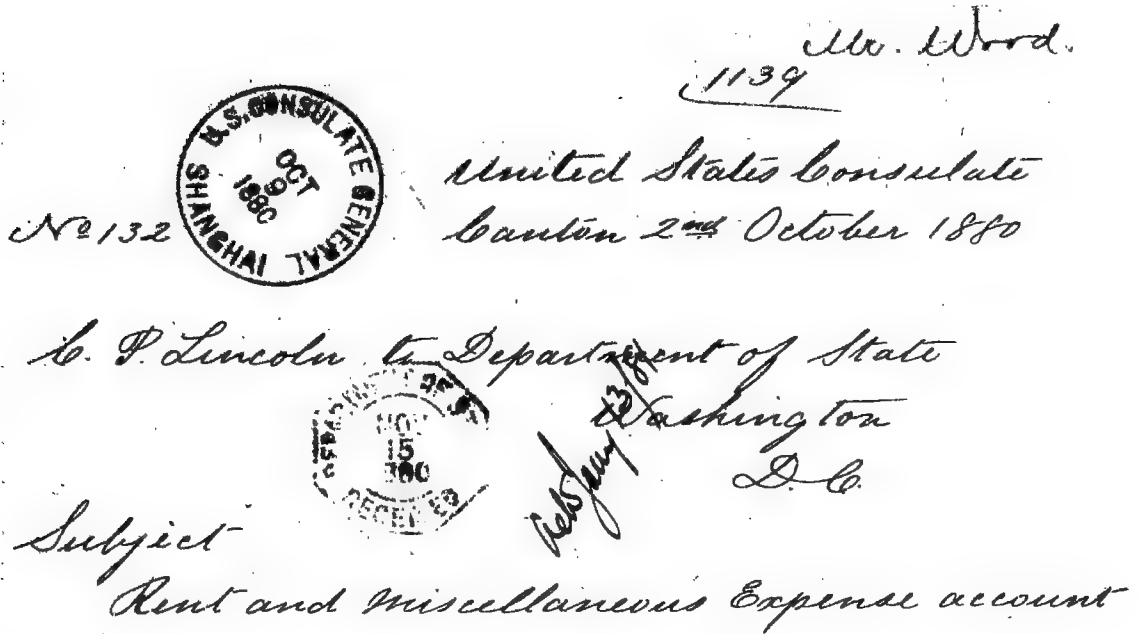 Mr. Wood.
1139
U.S. CONSULATE GENERAL SHANGHAI
OCT
9
1880
United States Consulate
No 132
Canton 2nd October 1880
C. P. Lincoln to Department of State
Washington
D. C.
DEPARTMENT OF STATE
NOV
15
1880
RECEIVED
Jany 13/81
Subject
Rent and Miscellaneous Expense account